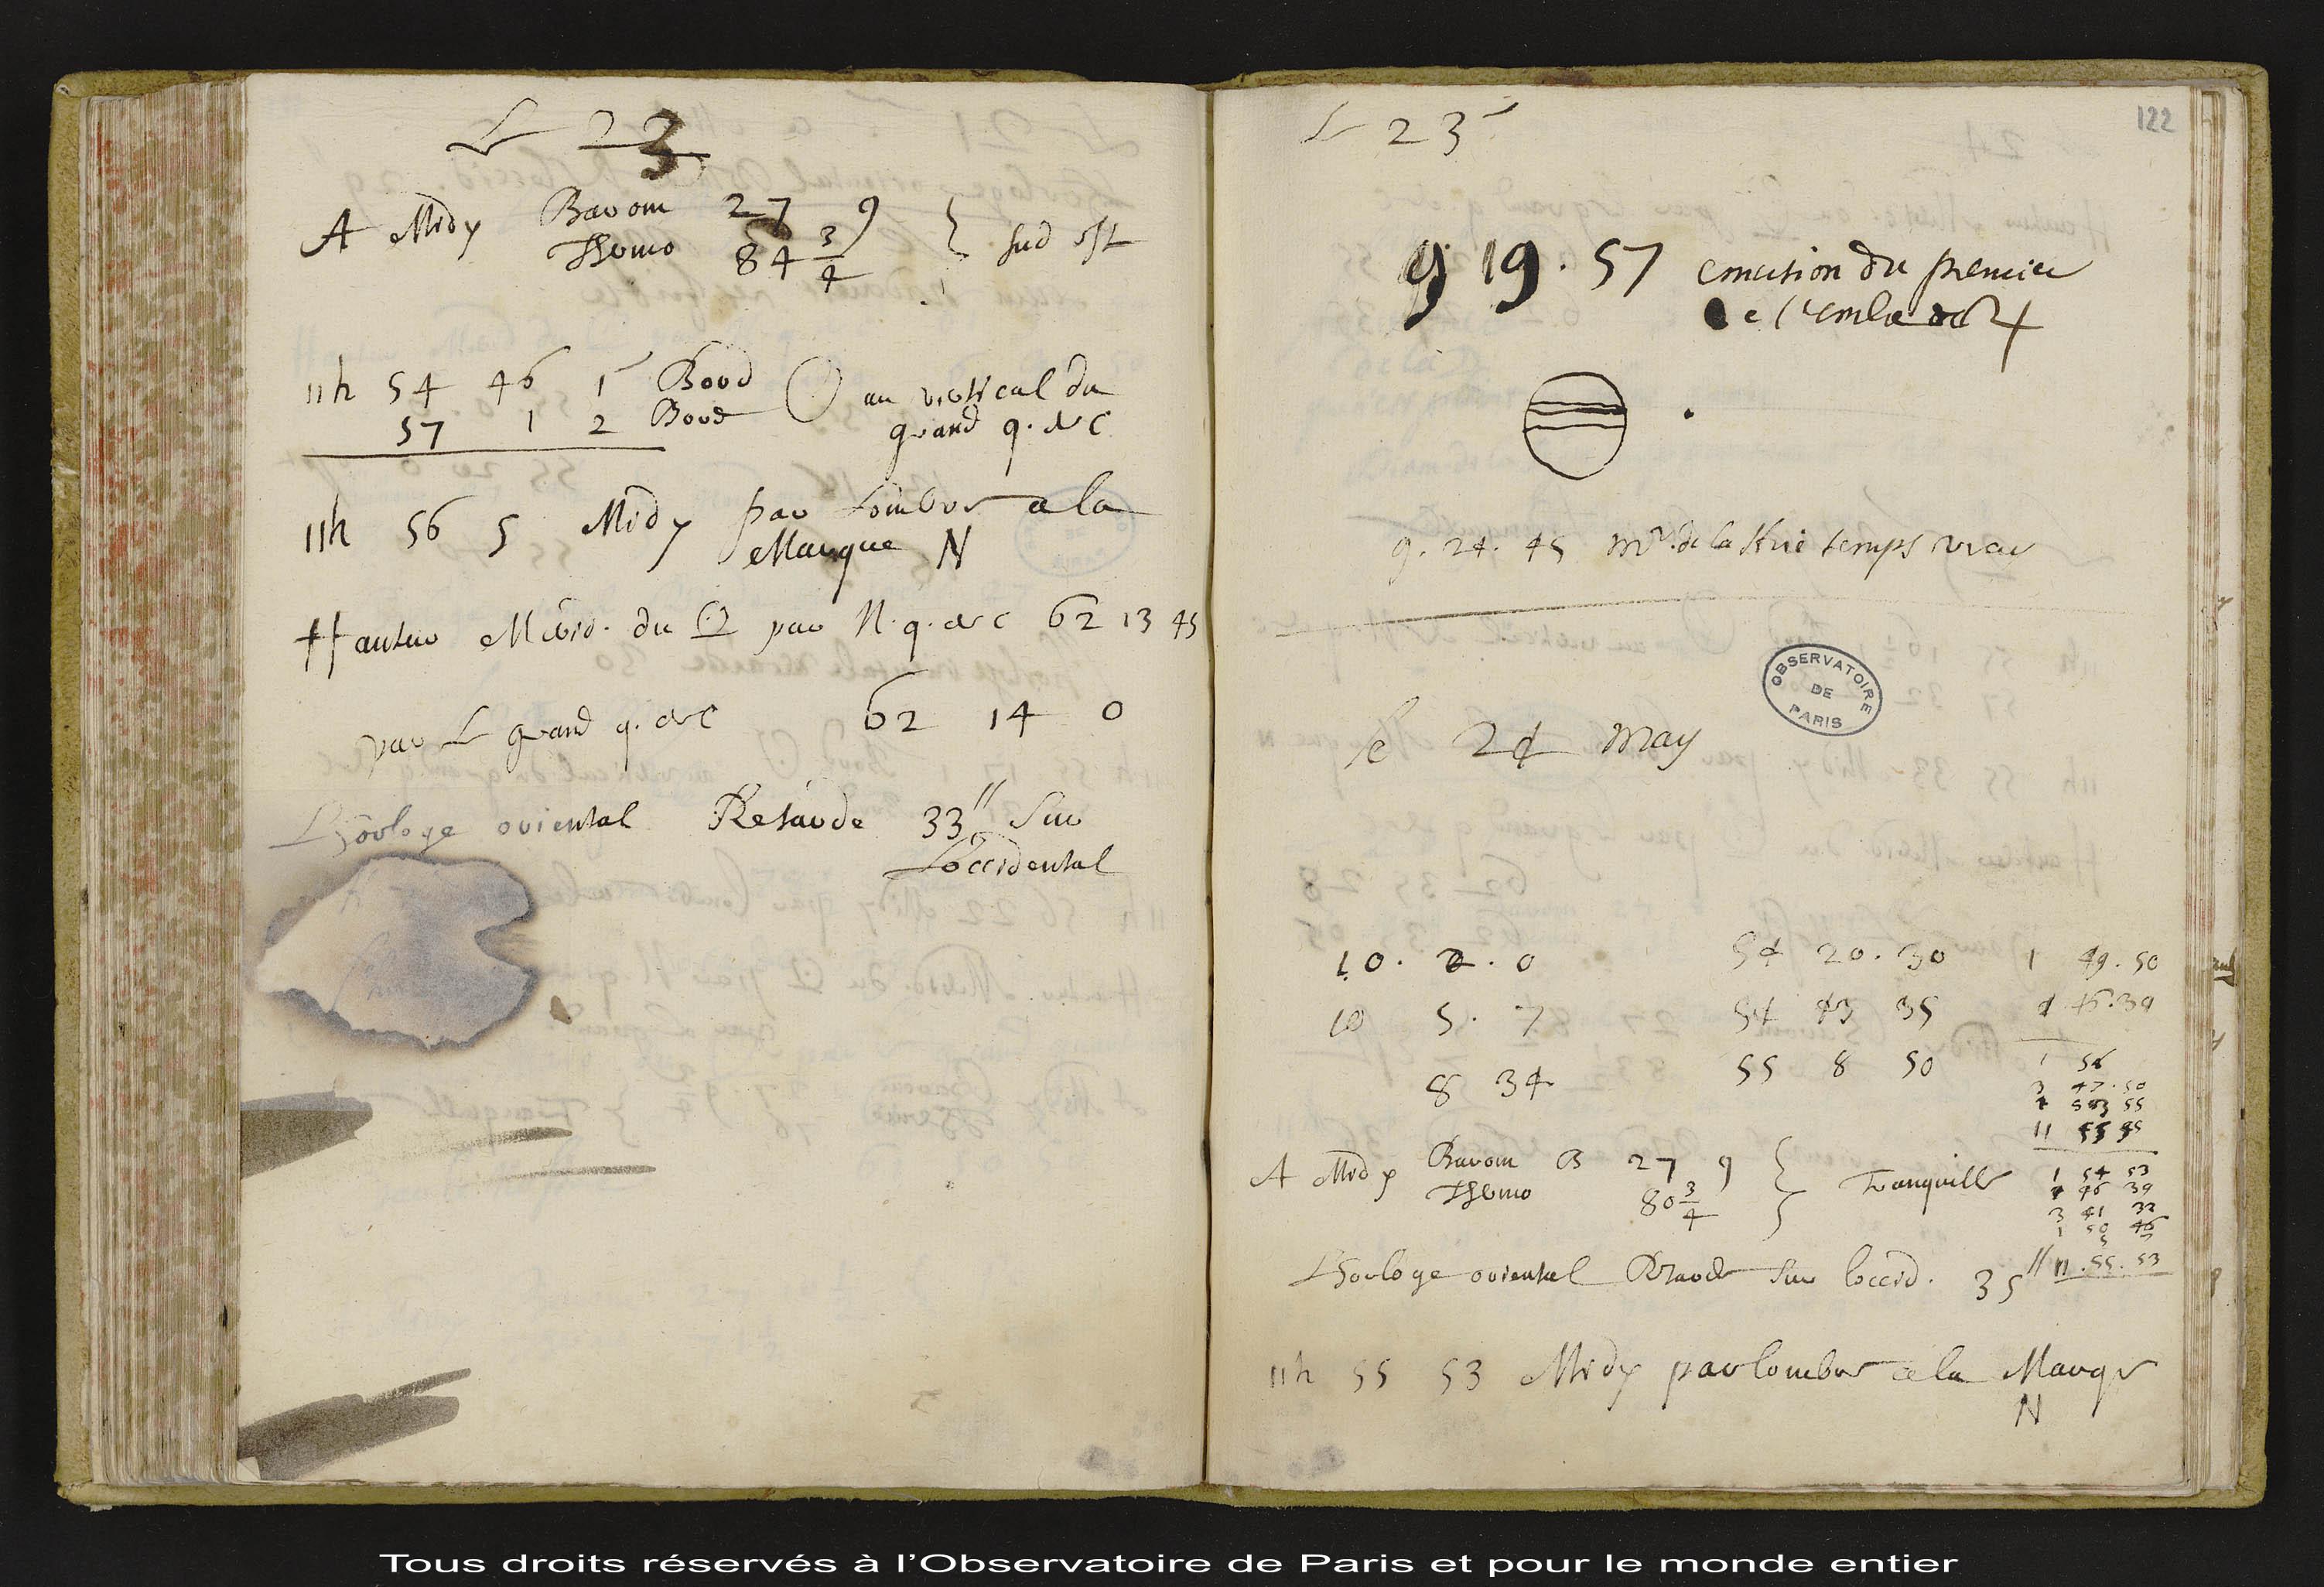 Le 23
A Midy Barom 27 9 } sud est
Thermo 84 3/4
11h 54 46 1 Bord ☉ au vertical du
57 1 2 Bord grand q. de C
11h 56 5 Midy par Lombre a la
Marque N
Hauteur Merid. du ☉ par N. q. de C 62 13 45
par Le grand q. de C 62 14 0
Lhorloge oriental Retarde 33" sur
Loccidental
122
Le 23
9 19. 57 emersion du premier
de l'ombre de ♃
9. 24. 45 Mr. de la Hire temps vray
OBSERVATOIRE DE PARIS
le 24 May
10. 2. 0 54 20. 30 1 49. 50
10 5. 7 54 43 35 4 46. 39
8 34 55 8 50 1 56
3 47. 50
55
11 55
A Midy Barom B 27 9 } Tranquille
Thermo 80 3/4
1 54 53
4 46 39
3 41 32
1 50 46
Lhorloge oriental Retarde sur loccid. 35" 11. 55. 53
11h 55 53 Midy par lombre a la Marque
N
Tous droits réservés à l'Observatoire de Paris et pour le monde entier